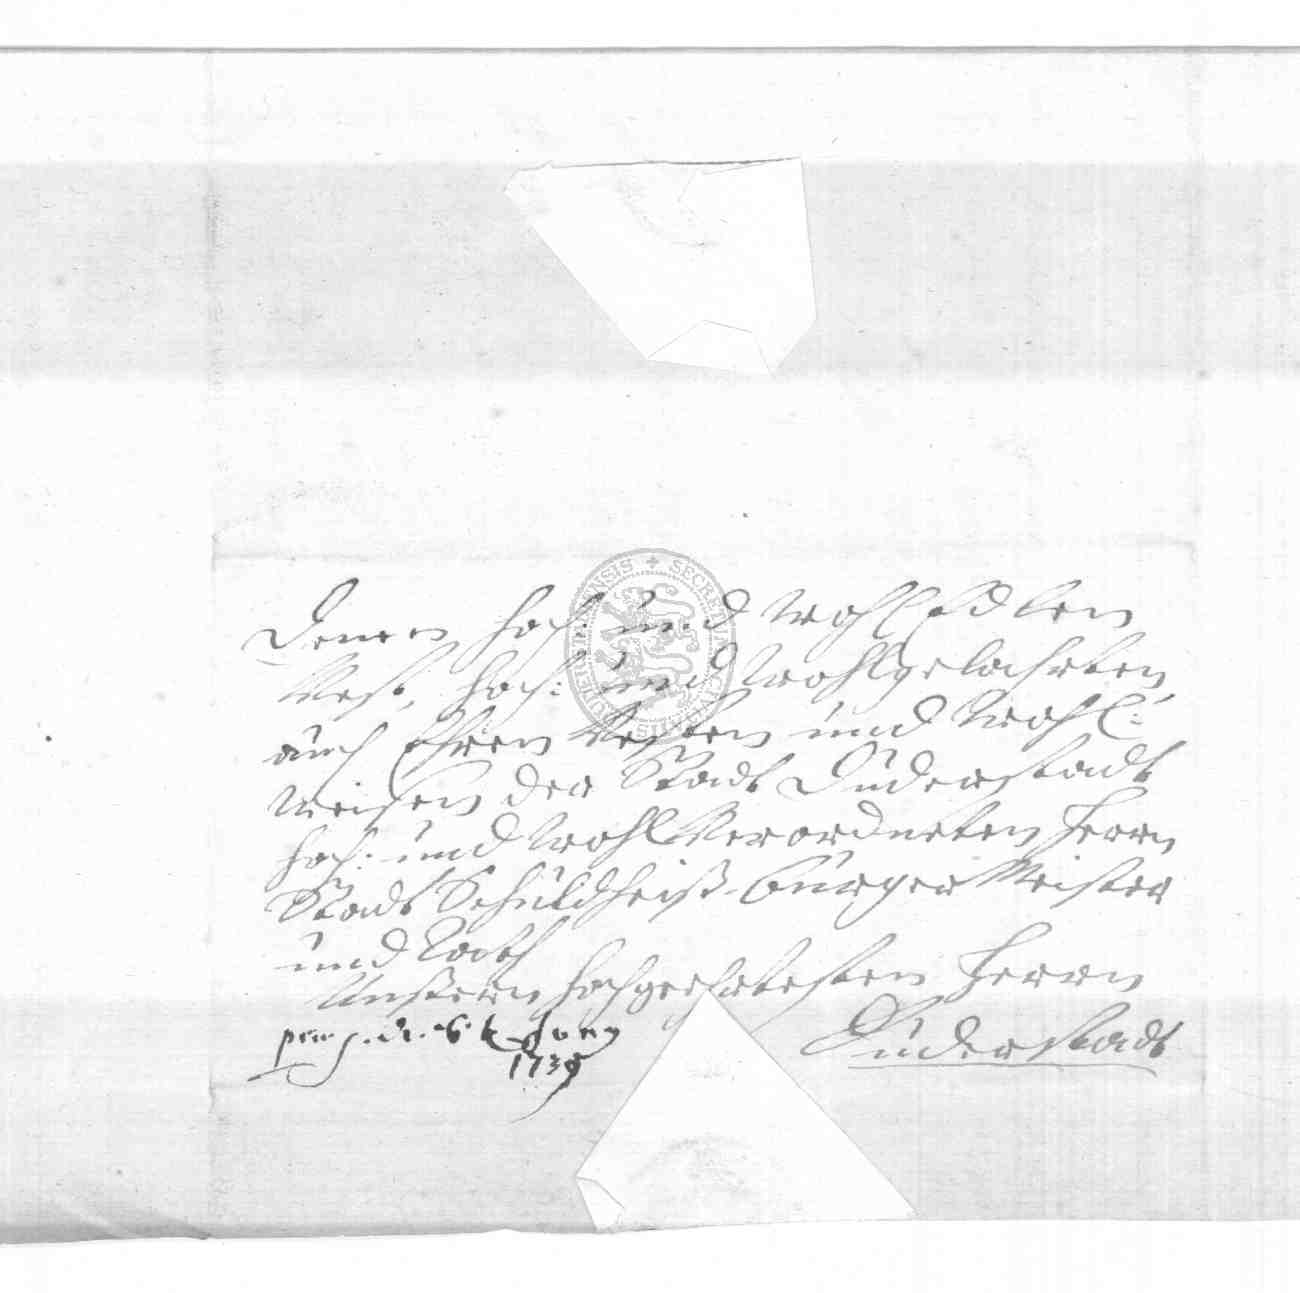 Denen Hoch: und WohlEdlen
Vest, Hoch: und Wohlgelahrten
auch Ehren Vesten und Wohl:
weisen der Stadt Duderstadt
Hoch: und WohlVerordneten Herrn
Stadt Schuldheiß Bürger Meister
und Rath
Unsern Hochgeehrtesten Herrn
Duderstadt
1739
SECRETUM CIVITATIS